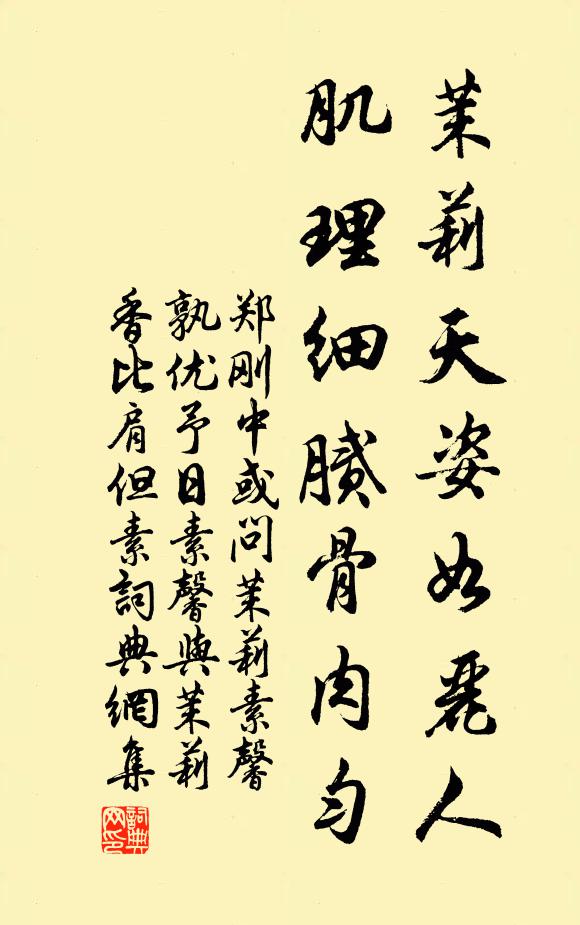 茉莉天姿如麗人
肌理细膩骨肉匀
郑刚中或问茉莉素馨
孰优予日素馨與茉莉
香比肩但素詞典網集
詞典网印